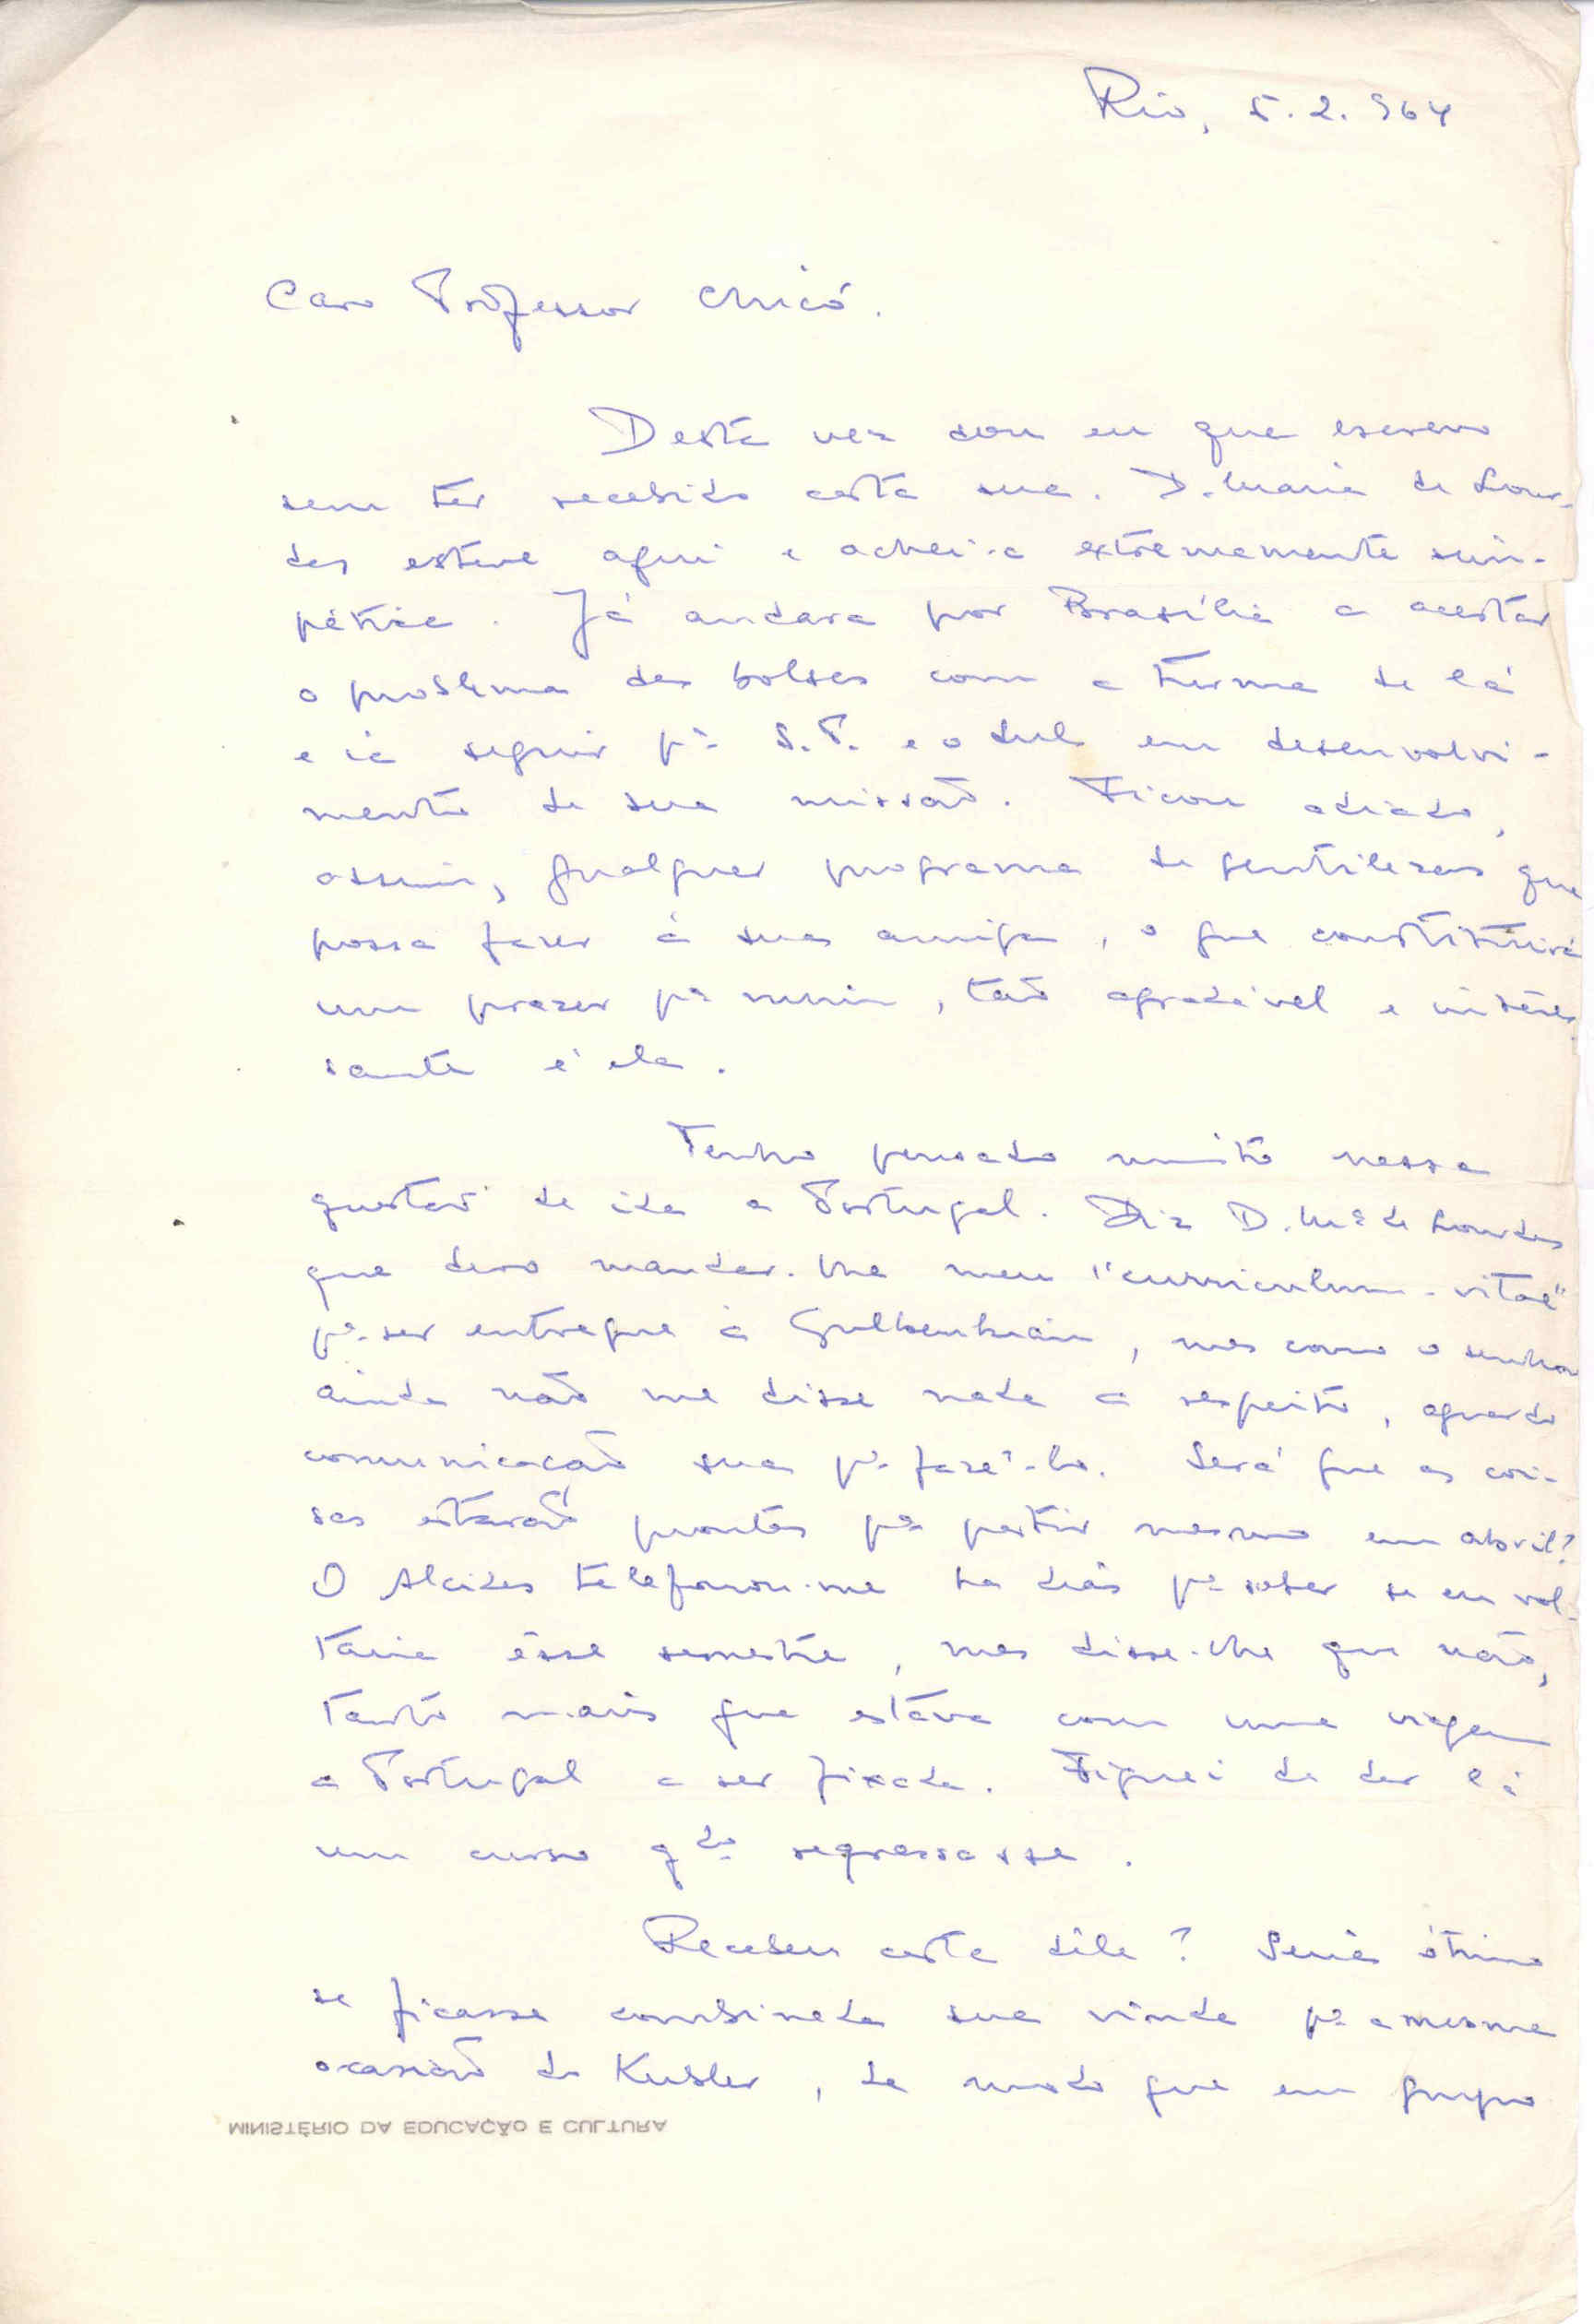 Rio, 5.2.964
Caro Professor Chicó.
Desta vez sou eu que escrevo
sem ter recebido carta sua. D. Maria de Lour-
des esteve aqui e achei-a extremamente sim-
pática. Já andara por Brasília a acertar
o problema das bolsas com a turma de lá
e ia seguir pª S.P. e o sul em desenvolvi-
mento de sua missão. Ficou adiado,
assim, qualquer programa de gentilezas que
possa fazer à sua amiga, o que constituirá
um prazer pª mim, tão agradável e interes-
sante é ela.
Tenho pensado muito nessa
questão de ida a Portugal. Diz D. Mª de Lourdes
que devo mandar-lhe meu "curriculum-vitae"
pª ser entregue à Gulbenkian, mas como o senhor
ainda não me disse nada a respeito, aguardo
comunicação sua pª fazê-lo. Será que as coi-
sas estarão prontas pª partir mesmo em abril?
O Alcides telefonou-me há dias pª saber se eu vol-
taria êsse semestre, mas disse-lhe que não,
tanto mais que estava com uma viagem
a Portugal a ser fixada. Fiquei de dar lá
um curso qdo regressasse.
Recebeu carta dêle? Seria ótimo
se ficasse combinada sua vinda pª a mesma
ocasião do Kubler, de modo que em grupo
MINISTÉRIO DA EDUCAÇÃO E CULTURA